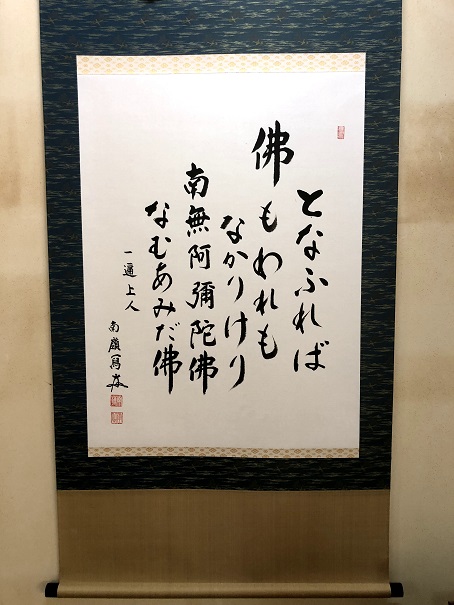 となふれば
佛もわれも
なかりけり
南無阿彌陀佛
なむあみだ佛
一遍上人
南嶺寫